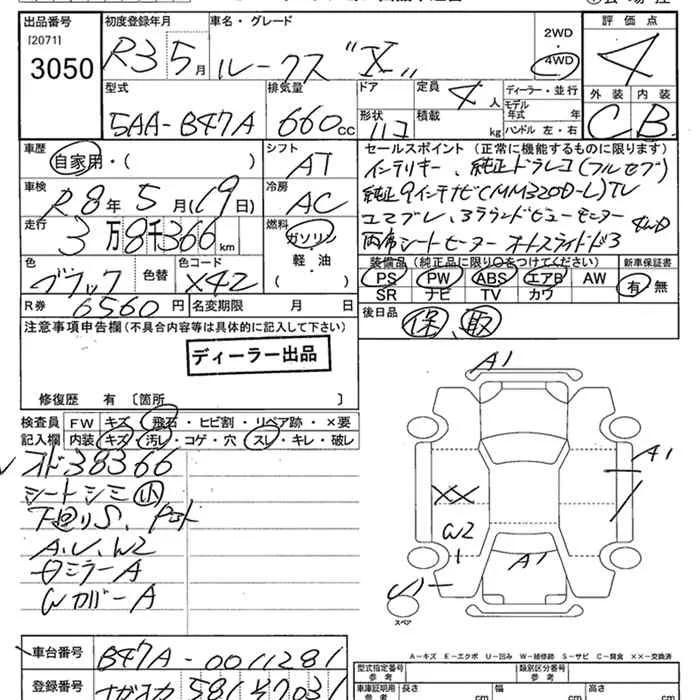 出品番号
[2071]
3050
初度登録年月
R3 5月
車名・グレード
ルークス "X"
2WD
4WD
評価点
4
外装 内装
C B
型式
5AA-B47A
排気量
660cc
ドア
形状
定員
4人
積載
kg
ディーラー・並行
モデル年式 年
ハンドル 左・右
車歴
自家用・( )
シフト
AT
車検
R8年5月(19日)
冷房
AC
走行
3万8千366km
燃料
ガソリン
軽・油
( )
色
ブラック
色替
色コード
X42
R券
6560円
名変期限 月 日
セールスポイント(正常に機能するものに限ります)
インテリキー、純正ドラレコ(
純正9インチナビ(MM320D-L)TV
エマブレ、3ラウンドビューモニター 4WD
両席シートヒーター オートスライド
装備品(純正品に限り○をつけてください)
PS PW ABS エアB AW
SR ナビ TV カワ
新車保証書
有 無
後日品
保、取
注意事項申告欄(不具合内容等は具体的に記入して下さい)
ディーラー出品
修復歴 有〔箇所 〕
検査員記入欄
FW キズ・飛石・ヒビ割・リペア跡・×要
内装 キズ・汚レ・コゲ・穴・スレ・キレ・破レ
オド38366
シートシミ 小
下廻りS、
A.U.W2
ミラーA
WカバーA
A1
A1
XX
W2
A1
スペア
A-キズ E-エクボ U-凹み W-補修跡 S-サビ C-腐食 ××-交換済
車台番号
B47A-0011281
登録番号
581 7031
型式指定番号
参考
類別区分番号
参考
車庫証明用
参考
長さ cm
幅 cm
高さ cm